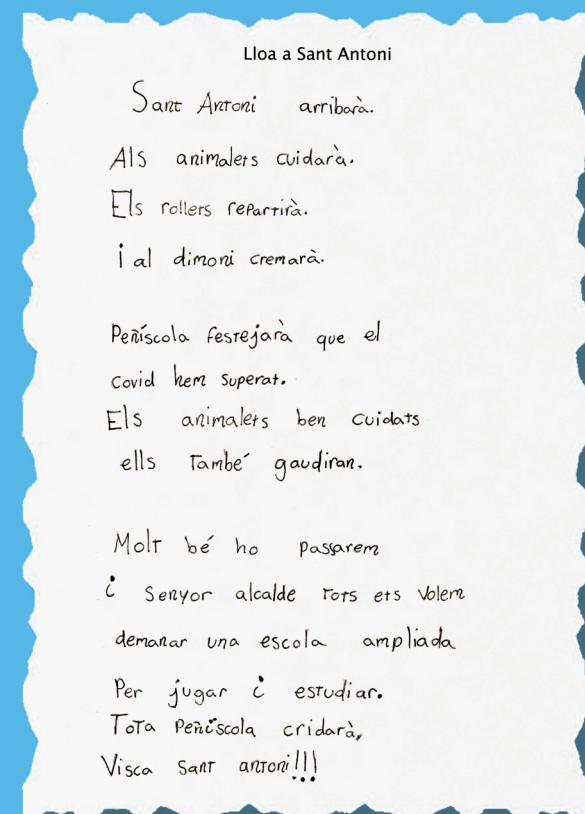 Lloa a Sant Antoni
Sant Antoni arribarà.
Als animalets cuidarà.
Els rollets repartirà.
i al dimoni cremarà.
Peñíscola festejarà que el
covid hem superat.
Els animalets ben cuidats
ells també gaudiran.
Molt bé ho passarem
i senyor alcalde tots ets volem
demanar una escola ampliada
Per jugar i estudiar.
Tota Peñíscola cridarà,
Visca Sant antoni!!!